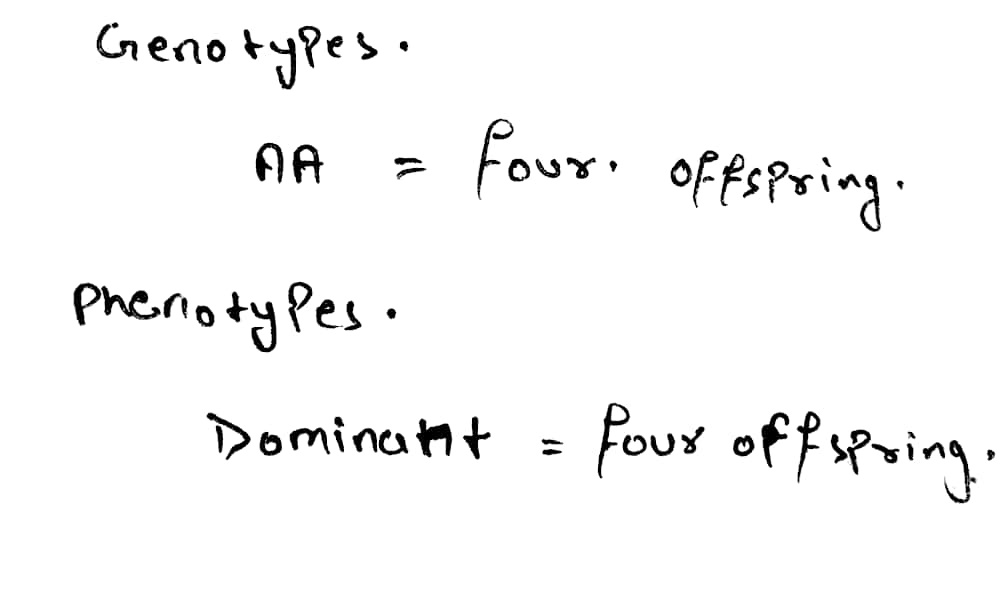 Genotypes.
AA = four. offspring.
Phenotypes.
Dominant = four offspring.